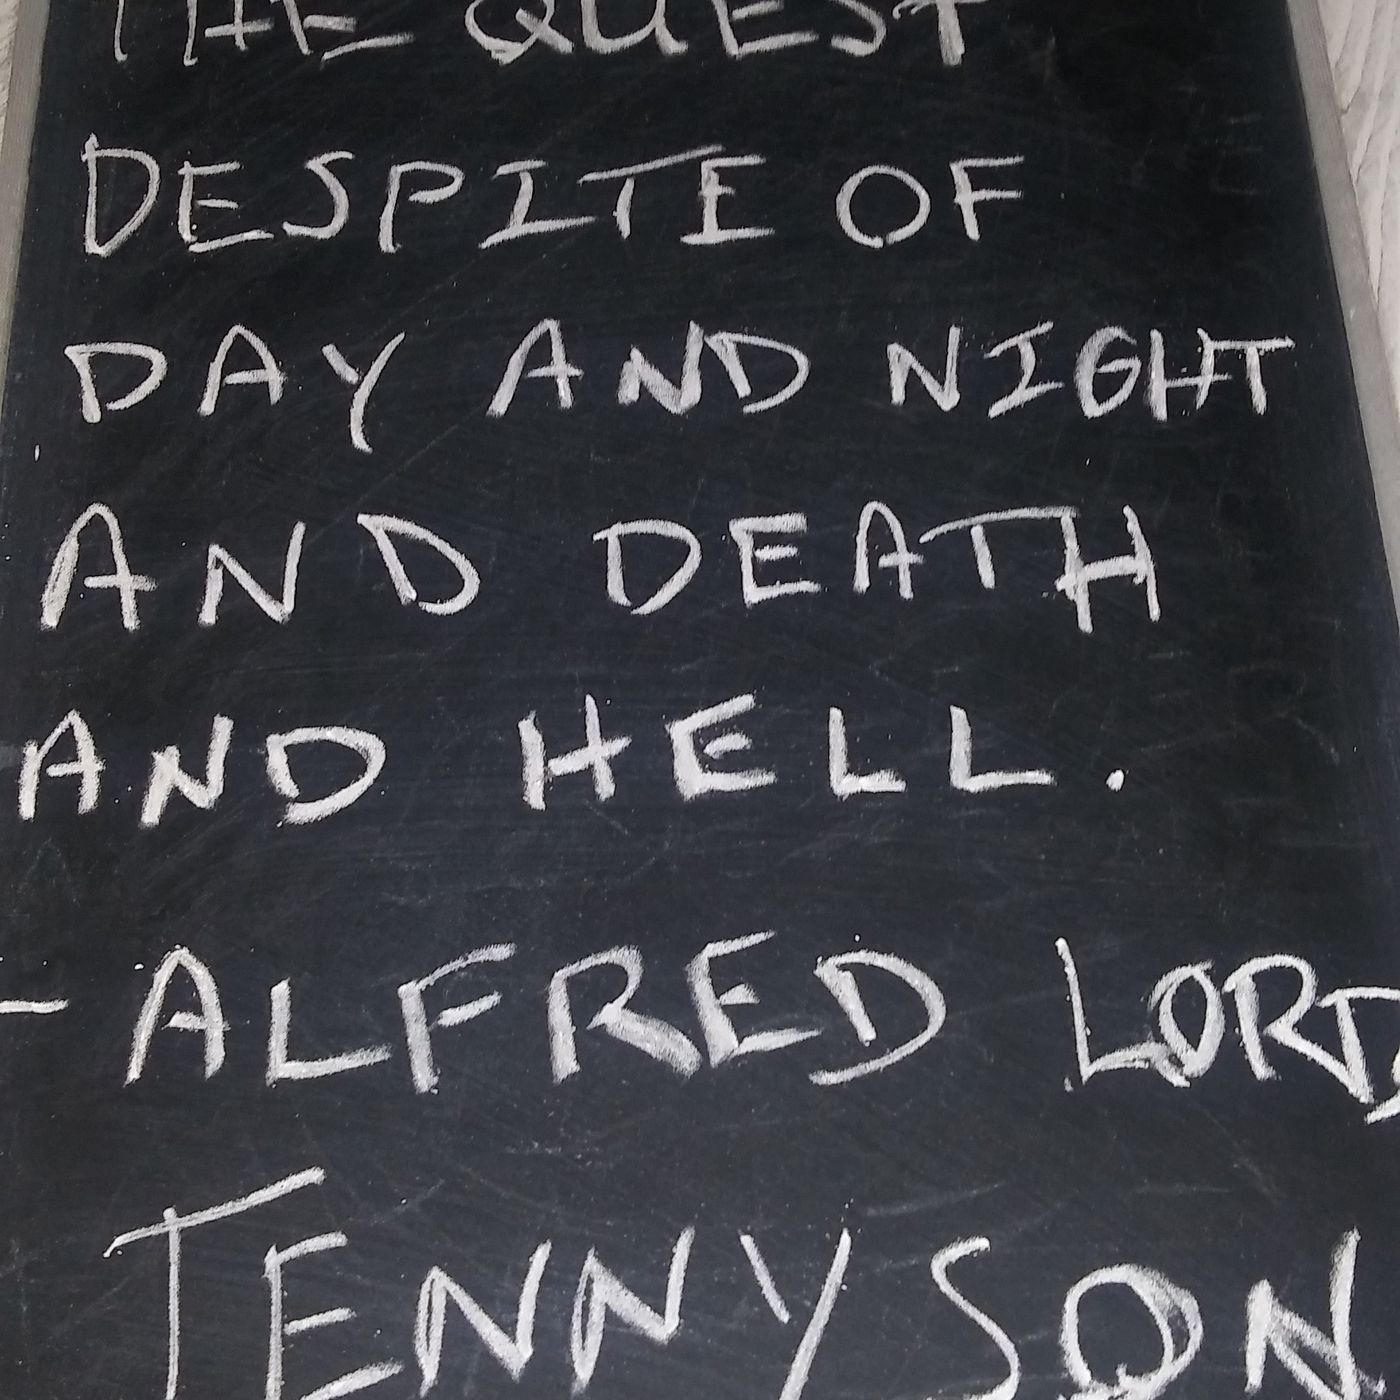 THE QUEST
DESPITE OF
DAY AND NIGHT
AND DEATH
AND HELL.
- ALFRED LORD
TENNYSON